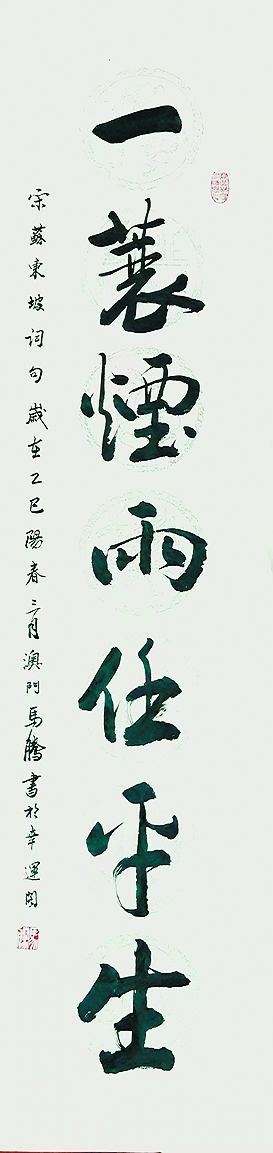 一蓑煙雨任平生
宋蘇東坡詞句歲在乙巳陽春三月澳門馬騰書於幸運閣